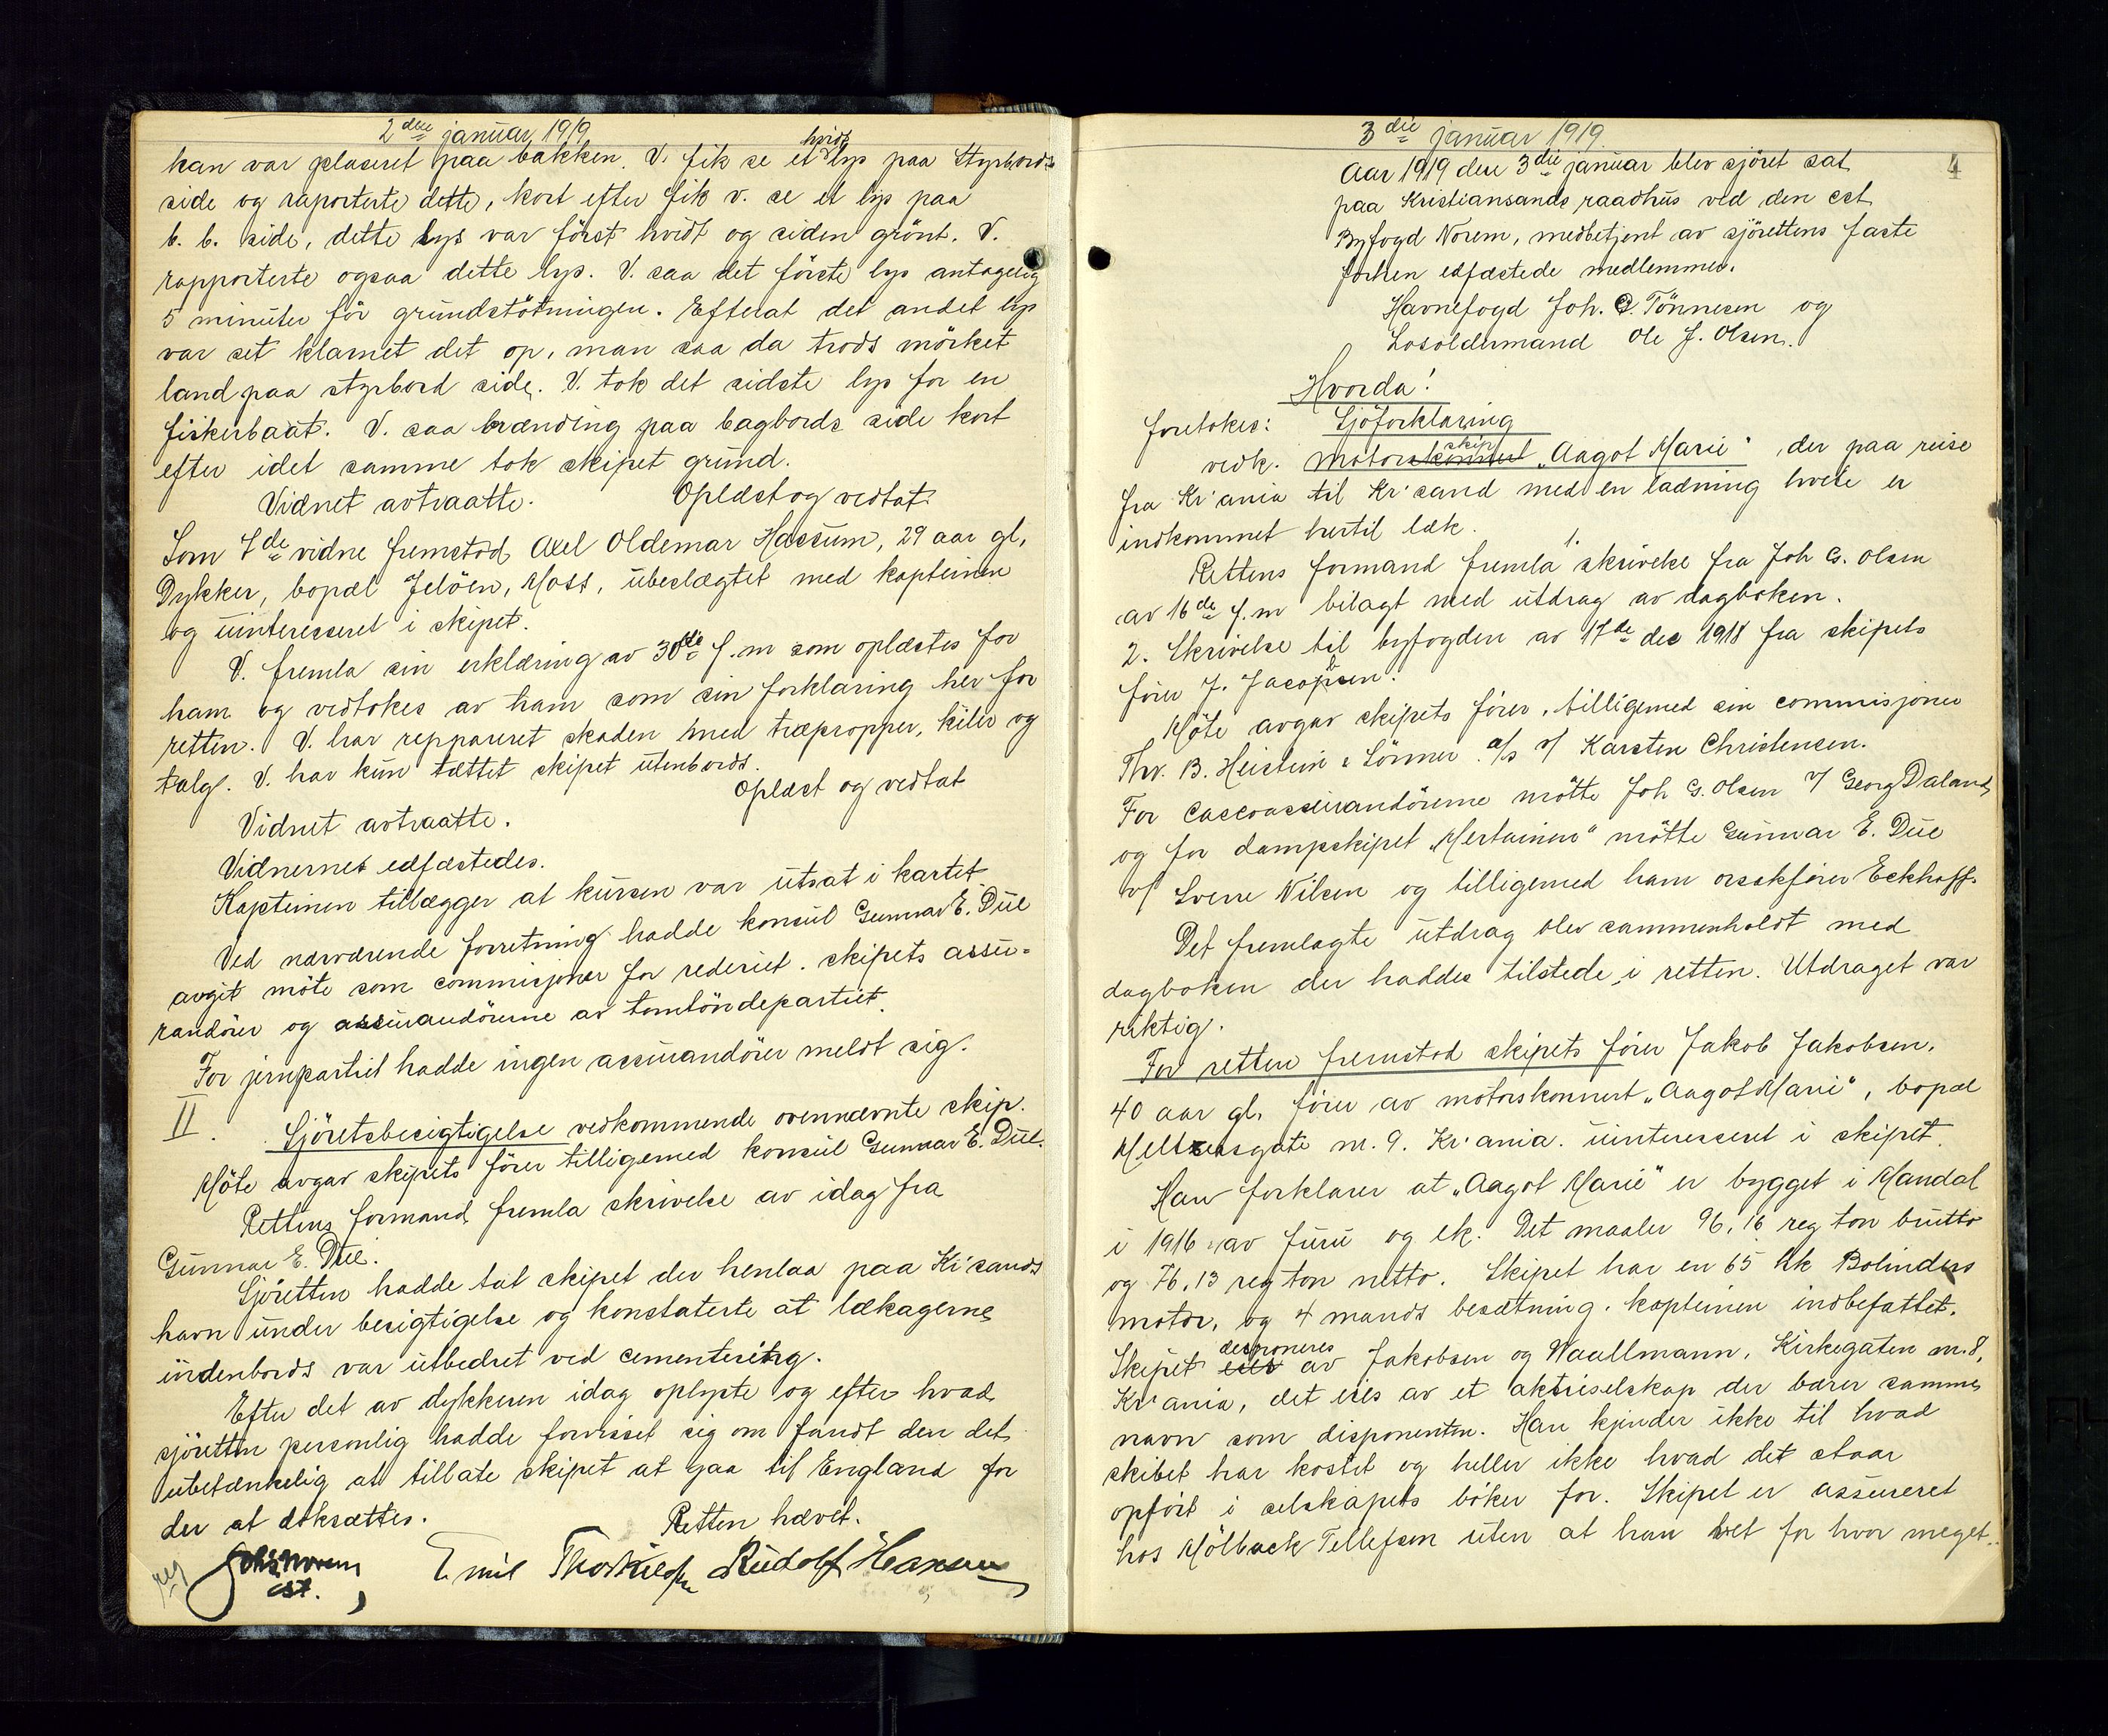 2den januar 1919
han var plaseret paa bakken. V. fik se et hvidt lys paa Styrbords
side og raporterte dette, kort efter fik v. se et lys paa
b. b. side, dette lys var først hvidt og siden grönt. V.
rapporterte ogsaa dette lys. V. saa det förste lys antagelig
5 minuter för grundstötningen. Efterat det andet lys
var set klarnet det op, man saa da trods mörket
land paa styrbord side. V. tok det sidste lys for en
fiskerbaat. V. saa brænding paa bagbords side kort
efter idet samme tok skipet grund.
Vidnet avtraatte. Oplæst og vedtat.
Som 7de vidne fremstod Axel Oldemar Hassum, 29 aar gl,
Dykker, bopæl Jelöen, Moss, ubeslægtet med kapteinen
og uinteresseret i skipet.
V. fremla sin erklæring av 30te f.m som oplæstes for
ham og vedtokes av ham som sin forklaring her for
retten. V. har repparert skaden med træpropper, kiler og
talg. V. har kun tættet skipet utenbords.
Oplæst og vedtat
Vidnet avtraatte.
Vidnernes edfæstedes.
Kapteinen tillægger at kursen var utsat i kartet
Ved nærværende forretning hadde konsul Gunnar E. Due
avgit möte som commisjonær for rederiet. skipets assu-
randörer og assurandörerne av tomtöndepartiet.
For jernpartiet hadde ingen assurandörer meldt sig.
II. Sjöretsbesigtigelse vedkommende ovennævnte skip.
Möte avgav skipets förer tilligemed konsul Gunnar E. Due.
Rettens formand fremla skrivelse av idag fra
Gunnar E. Due.
Sjöretten hadde tat skipet der henlaa paa Kr'sands
havn under besigtigelse og konstaterte at lækagerne
indenbords var utbedret ved cementering.
Efter det av dykkeren idag oplyste og efter hvad
sjöretten personlig hadde forvisset sig om fandt den det
ubetænkelig at tillate skipet at gaa til England for
der at doksættes. Retten hævet.
Johs Norem Emil Thorkildsen Rudolf Hansen
cst.
3die januar 1919.
4
Aar 1919 den 3die januar blev sjöret sat
paa Kristiansands raadhus ved den cst
Byfogd Norem, medbetjent av sjörettens faste
forhen edfæstede medlemmer.
Havnefogd Joh. G. Tönnesen og
Losoldermand Ole J. Olsen.
Hvorda!
foretokes: Sjöforklaring
vedk. motorskonnert skip „Aagot Marie" der paa reise
fra Kr'ania til Kr'sand med en ladning hvete er
indkommet hertil læk.
Rettens formand fremla 1. skrivelse fra Joh G. Olsen
av 16de f.m bilagt med utdrag av dagboken.
2. Skrivelse til byfogden av 17de des 1918 fra skipets
förer J. Jacobsen.
Möte avgav skipets förer, tilligemed sin commisjonær
Thv. B. Heistein & Sönner a/s v/ Karsten Christensen.
For Cascoassurandörerne mötte Joh G. Olsen v/ Georg Daland
og for dampskipet „Mertainen" mötte Gunnar E. Due
v/ Sverre Nilsen og tilligemed ham orsakförer Eckhoff.
Det fremlagte utdrag blev sammenholdt med
dagboken der haddes tilstede i retten. Utdraget var
riktig.
For retten fremstod skipets förer Jakob Jakobsen,
40 aar gl. förer av motorskonnert „Aagot Marie", bopæl
Meltzersgate nr. 9. Kr'ania. uinteresseret i skipet.
Han forklarer at „Aagot Marie" er bygget i Mandal
i 1916 av furu og ek. Det maaler 96,16 reg ton brutto
og 76,13 reg ton netto. Skipet har en 65 hk Bolinders
motor, og 4 mands besætning. kapteinen indbefattet.
Skipet eies disponeres av Jakobsen og Waallmann, Kirkegaten nr. 8,
Kr'ania, det eies av et aktieselskap der bærer samme
navn som disponenten. Han kjender ikke til hvad
skibet har kostet og heller ikke hvad det staar
opfört i selskapets böker for. Skipet er assureret
hos Mölback Tellefsen uten at han vet for hvor meget.